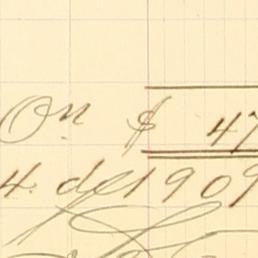 On $ 47
4 de 1909